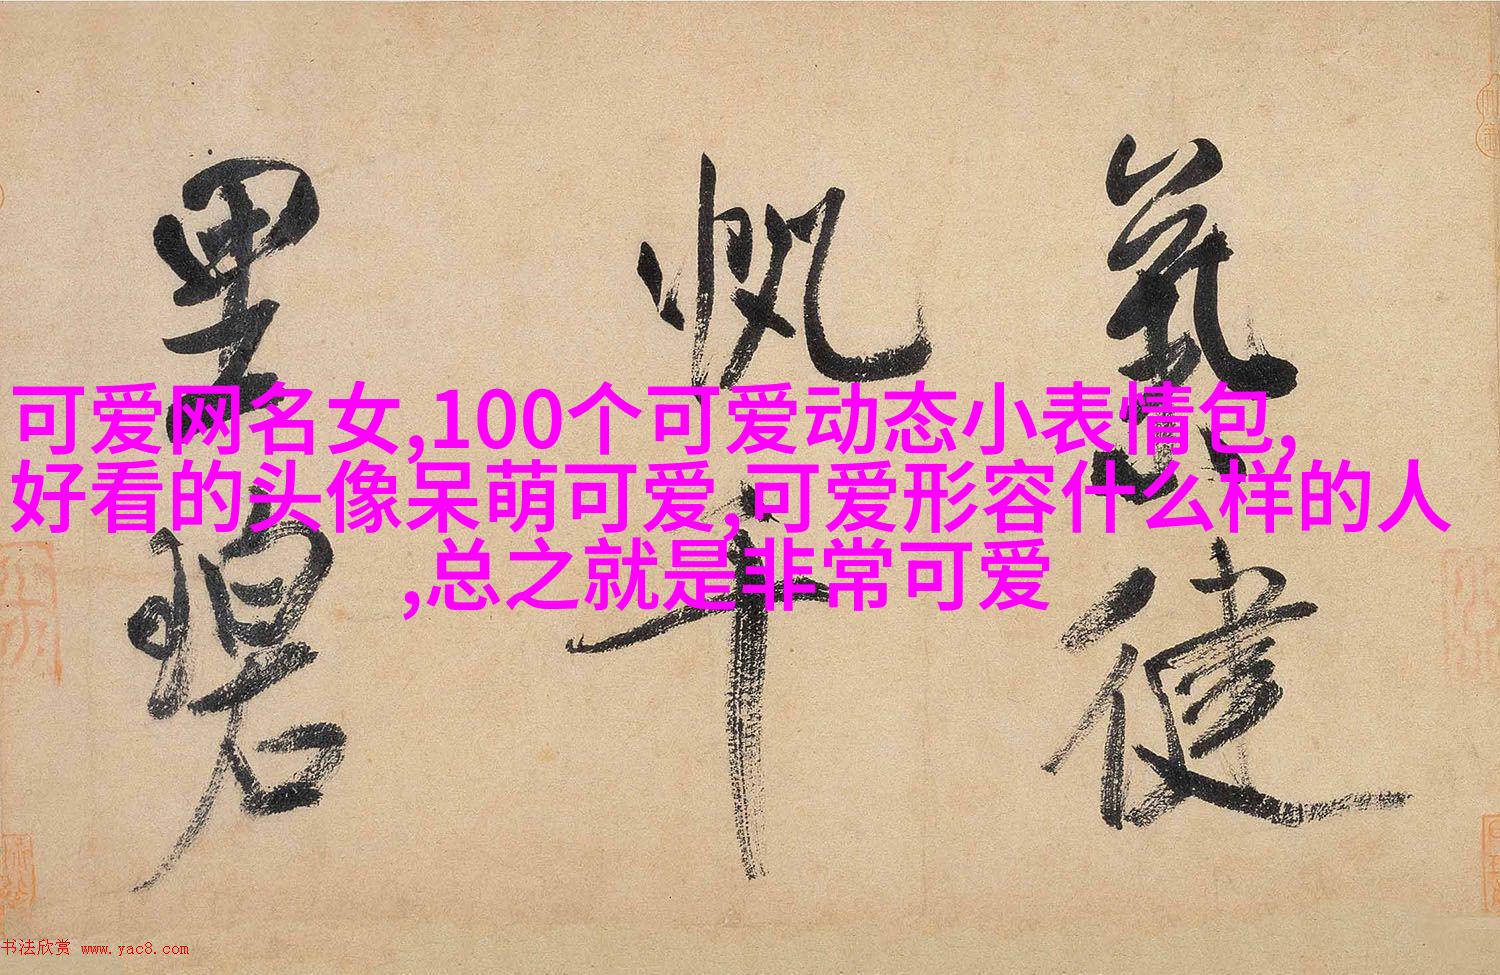 氣健
帆千
里碧
可爱网名女,100个可爱动态小表情包,
好看的头像呆萌可爱,可爱形容什么样的人
,总之就是非常可爱
书法欣赏 www.yac8.com